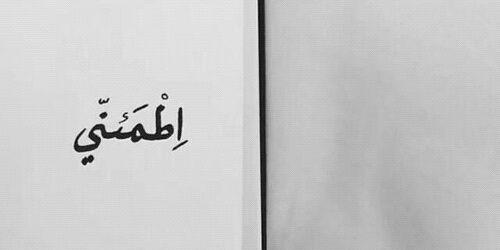 اِطْمَئنّي